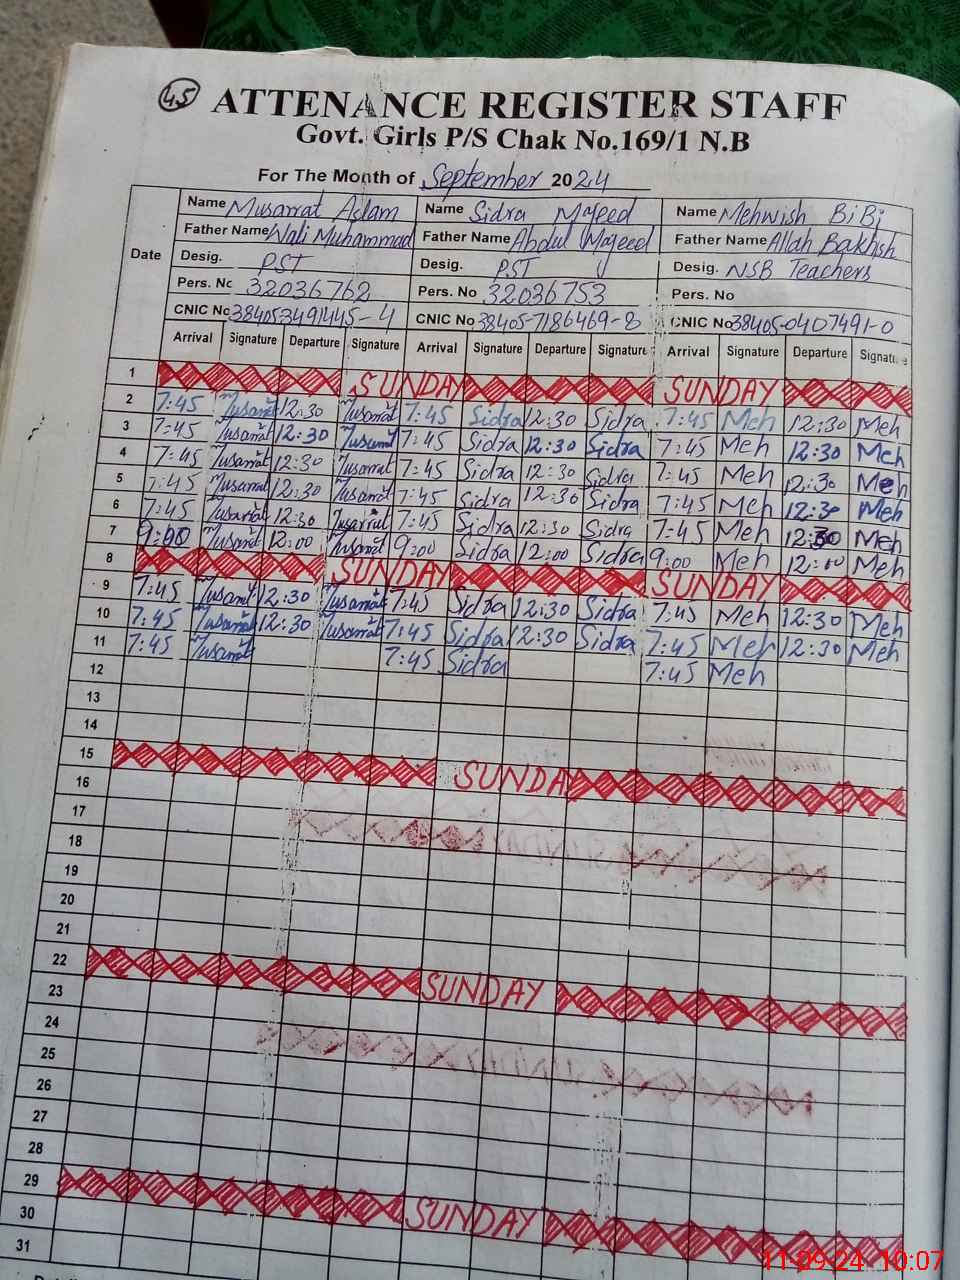 45
ATTENANCE REGISTER STAFF
Govt. Girls P/S Chak No.169/1 N.B
For The Month of September 2024
Date
Name Musarrat Aslam Name Sidra Majeed Name Mehwish BiBi
Father Name Wali Muhammad Father Name Abdul Majeed Father Name Allah Bakhsh
Desig. PST Desig. PST Desig. NSB Teachers
Pers. No 32036762 Pers. No 32036753 Pers. No
CNIC No 38405-3491445-4 CNIC No 38405-7186469-8 CNIC No 38405-0407491-0
Arrival Signature Departure Signature Arrival Signature Departure Signature Arrival Signature Departure Signature
1 SUNDAY SUNDAY
2 7:45 Musarrat 12:30 Musarrat 7:45 Sidra 12:30 Sidra 7:45 Meh 12:30 Meh
3 7:45 Musarrat 12:30 Musarrat 7:45 Sidra 12:30 Sidra 7:45 Meh 12:30 Meh
4 7:45 Musarrat 12:30 Musarrat 7:45 Sidra 12:30 Sidra 7:45 Meh 12:30 Meh
5 7:45 Musarrat 12:30 Musarrat 7:45 Sidra 12:30 Sidra 7:45 Meh 12:30 Meh
6 7:45 Musarrat 12:30 Musarrat 7:45 Sidra 12:30 Sidra 7:45 Meh 12:30 Meh
7 9:00 Musarrat 12:00 Musarrat 9:00 Sidra 12:00 Sidra 9:00 Meh 12:00 Meh
8 SUNDAY SUNDAY
9 7:45 Musarrat 12:30 Musarrat 7:45 Sidra 12:30 Sidra 7:45 Meh 12:30 Meh
10 7:45 Musarrat 12:30 Musarrat 7:45 Sidra 12:30 Sidra 7:45 Meh 12:30 Meh
11 7:45 Musarrat 7:45 Sidra 7:45 Meh
12
13
14
15 SUNDA
16
17
18
19
20
21
22 SUNDAY
23
24
25
26
27
28
29 SUNDAY
30
31
11 09 24 10:07